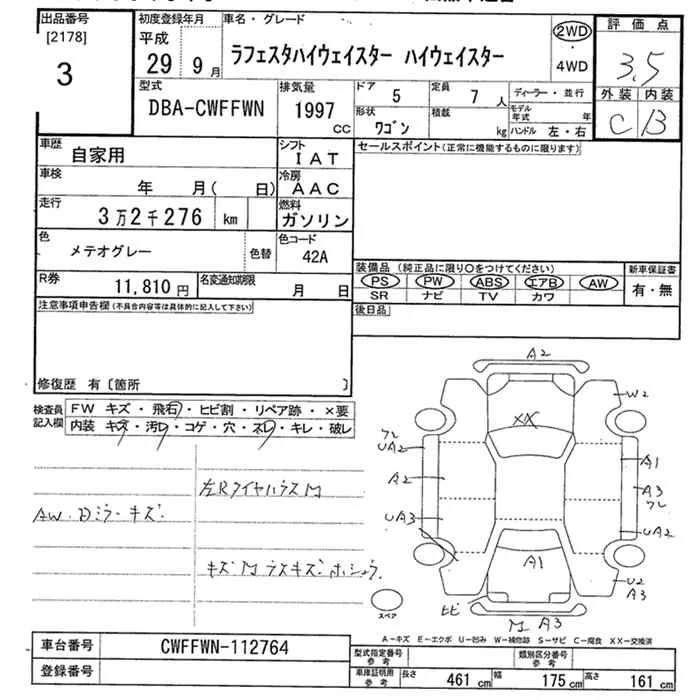 出品番号 初度登録年月 車名・グレード 評価点
[2178] 平成
3 29 9月 ラフェスタハイウェイスター ハイウェイスター 2WD 3.5
4WD
型式 排気量 ドア 5 定員 7人 ディーラー・並行 外装 内装
DBA-CWFFWN 1997 cc 形状 ワゴン 積載 kg モデル年式 年 C B
ハンドル 左・右
車歴 自家用 シフト IAT セールスポイント(正常に機能するものに限ります)
車検 年 月( 日) 冷房 AAC
走行 3万2千276 km 燃料 ガソリン
色 メテオグレー 色替 色コード 42A
装備品 (純正品に限り○をつけてください) 新車保証書
R券 11,810円 名変通知期限 月 日 PS PW ABS エアB AW 有・無
SR ナビ TV カワ
注意事項申告欄(不具合内容等は具体的に記入して下さい) 後日品
修復歴 有[箇所 ]
検査員記入欄 FW キズ・飛石・ヒビ割・リペア跡・×要
内装 キズ・汚レ・コゲ・穴・スレ・キレ・破レ
AW.Dミラーキズ
キズM ラスキズ ホシュウ
A2
W2
XX
フレ
UA2
A1
A2
A3
フレ
UA3
UA2
A1
U2
A3
ヒビ
M A3
スペア
A-キズ E-エクボ U-凹み W-補修跡 S-サビ C-腐食 XX-交換済
車台番号 CWFFWN-112764 型式指定番号 参考 類別区分番号 参考
登録番号 車庫証明用 参考 長さ 461 cm 幅 175 cm 高さ 161 cm